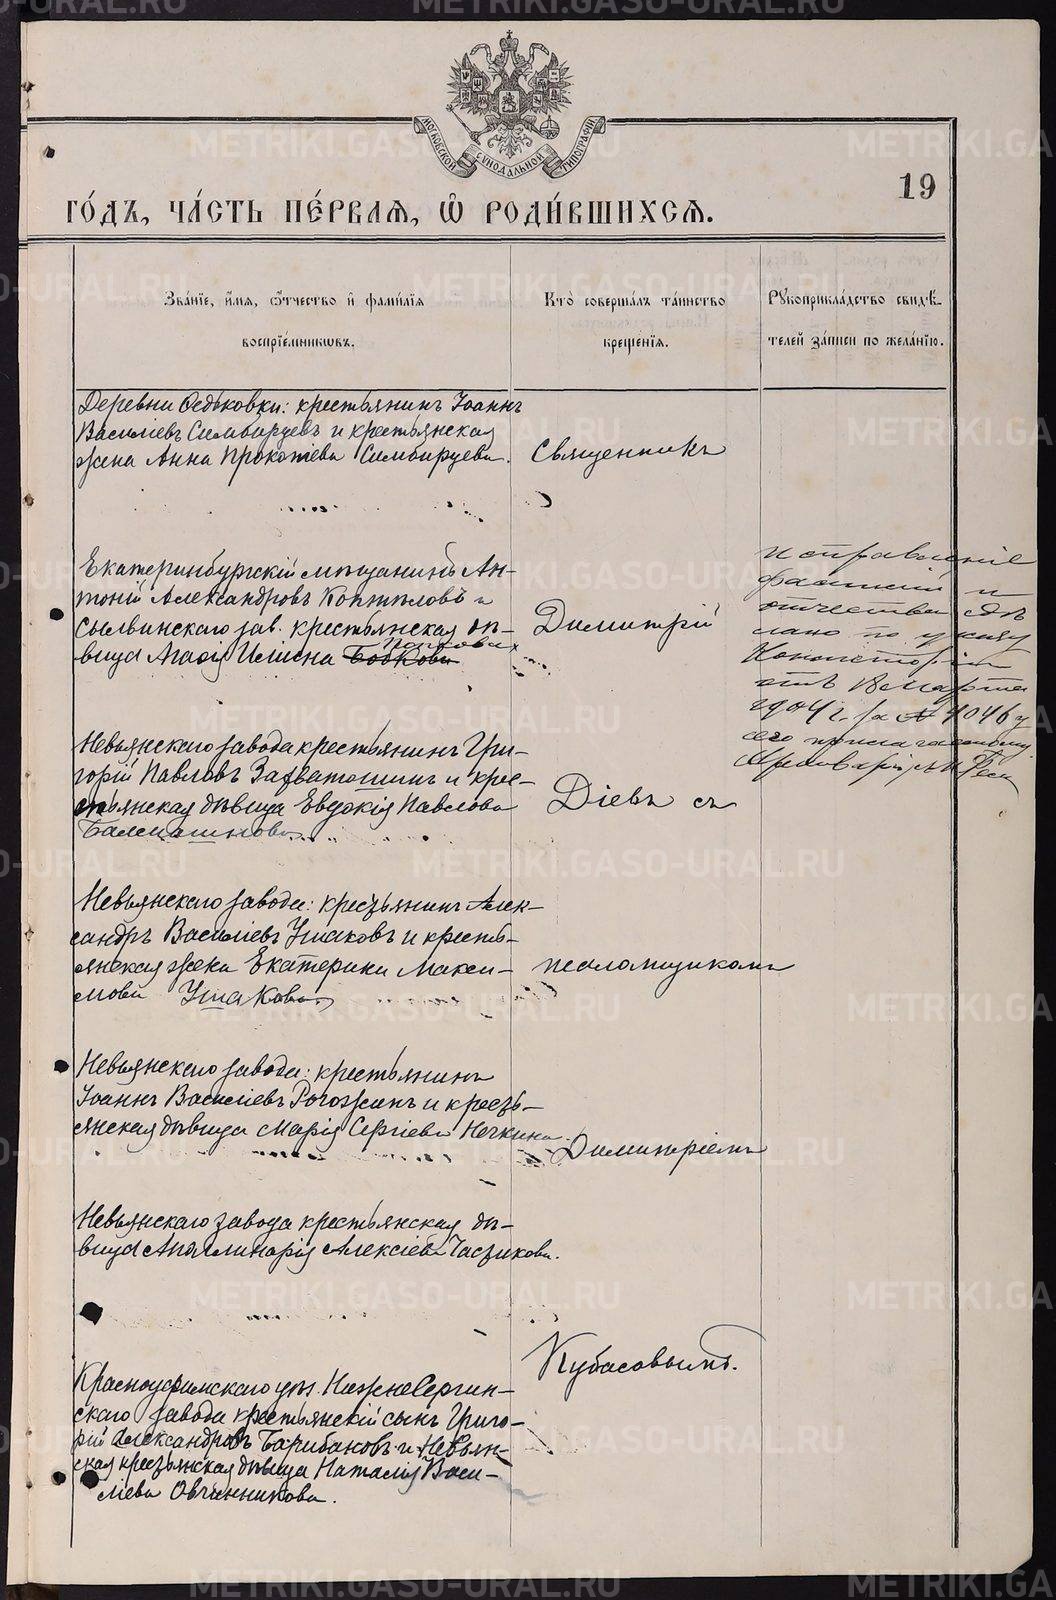 METRIKI.GASO-URAL.RU
МОСКОВСКОЙ СѴНОДАЛЬНОЙ ТИПОГРАФИИ
19
ГО́ДЪ, ЧА́СТЬ ПЕ́РВАѦ, Ѡ҆ РОДИ́ВШИХСѦ.
Зва́нїе, и҆́мѧ, ѻ҆́тчество и҆ фами́лїѧ
воспрїе́мникѡвъ.
Кто̀ соверша́лъ та́инство
креще́нїѧ.
Рꙋкоприкла́дство свидѣ́-
телей за́писи по жела́нїю.
Деревни Ѳедьковки: крестьянинъ Іоаннъ
Василіевъ Симбирцевъ и крестьянская
жена Анна Прокопіева Симбирцева.
Священникъ
Екатеринбургскій мѣщанинъ Ан-
тоній Александровъ Коптѣловъ и
Сылвинскаго зав. крестьянская дѣ-
вица Марія
Димитрій
исправленіе
фамилій и
отчества сдѣ
лано по указу
Консисторіи
отъ Марта
1904 г. за № 4046
Невьянскаго завода крестьянинъ Гри-
горій Павловъ Захватошинъ и крес-
тьянская дѣвица Евдокія Павлова
Балмашнова
Діевъ съ
Невьянскаго завода: крестьянинъ Алек-
сандръ Василіевъ Ушаковъ и кресть-
янская жена Екатерина Макси-
мова Ушакова.
псаломщикомъ
Невьянскаго завода: крестьянинъ
Іоаннъ Василіевъ Рогожинъ и кресть-
янская дѣвица Марія Сергіева Нечкина.
Димитріемъ
Невьянскаго завода крестьянская дѣ-
вица Аполлинарія Алексіева Часовикова.
Кубасовымъ.
Красноуфимскаго уѣз. НижнеСергин-
скаго завода крестьянскій сынъ Григо-
рій Александровъ Барабановъ и Невьян-
ская крестьянская дѣвица Наталія Васи-
ліева Овчинникова.